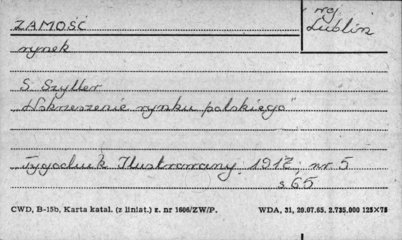 ZAMOŚĆ
woj.
Lublin
rynek
S. Szyller
„Wskrzeszenie rynku polskiego"
Tygodnik Ilustrowany, 1917, nr 5
s. 65
CWD, B-15b, Karta katal. (z liniat.) z. nr 1606/ZW/P. WDA, 31, 20.07.65. 2.735.000 125×75